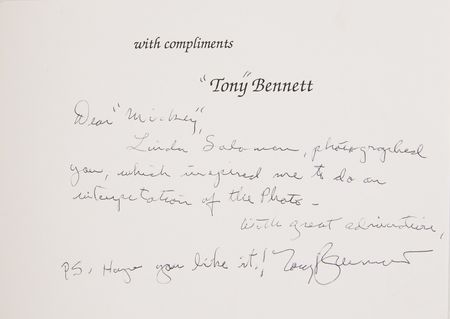 with compliments
"Tony" Bennett
Dear "Mickey",
Linda Soloman, photographed
you, which inspired me to do an
intepetation of the Photo -
With great admiration,
PS, Hope you like it! Tony Bennett